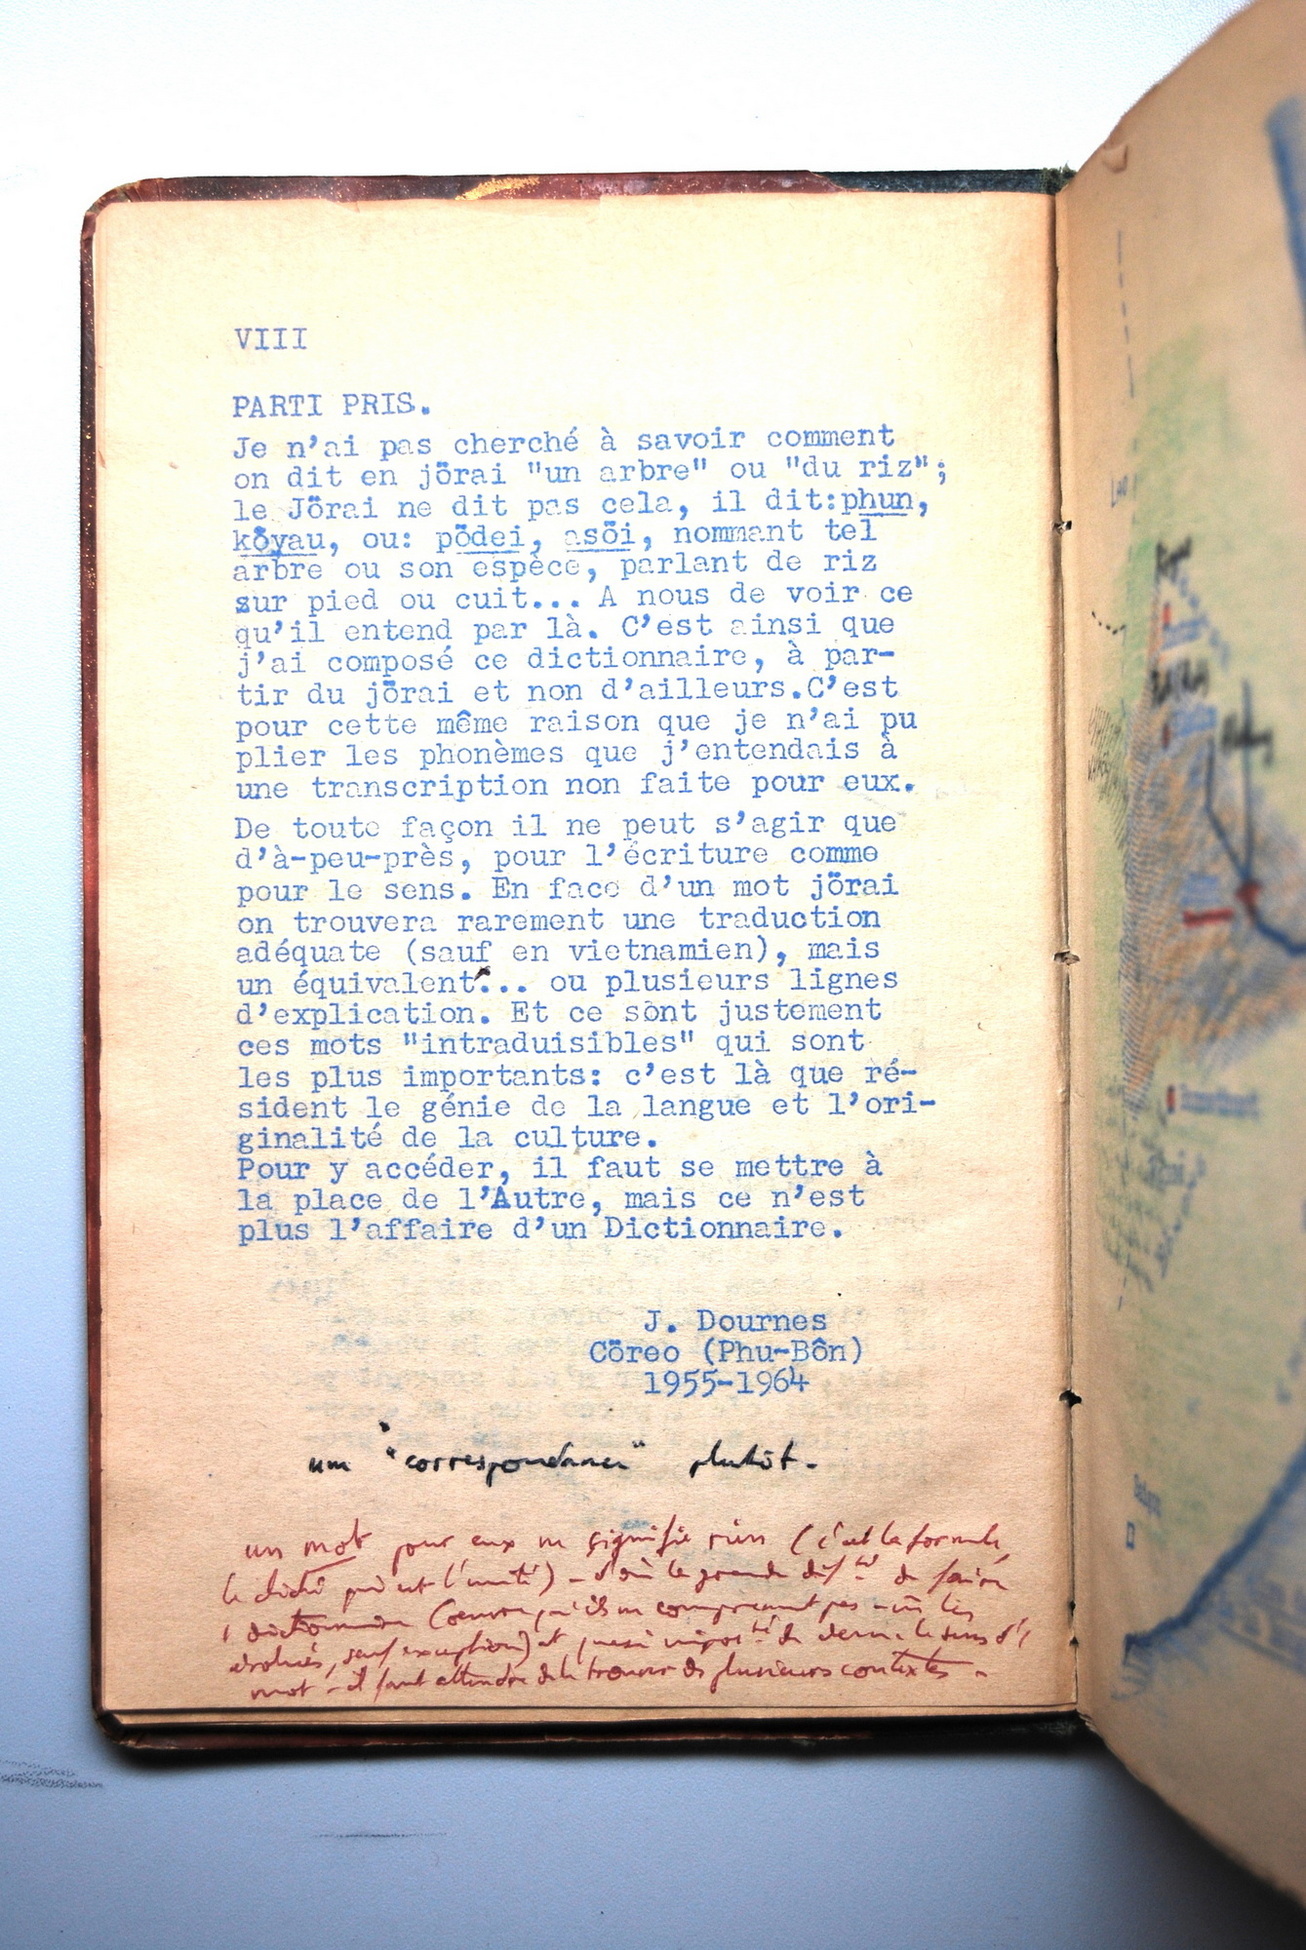 VIII
PARTI PRIS.
Je n'ai pas cherché à savoir comment
on dit en jörai "un arbre" ou "du riz";
le Jörai ne dit pas cela, il dit:phun,
köyau, ou: pödei, asöi, nommant tel
arbre ou son espèce, parlant de riz
sur pied ou cuit... A nous de voir ce
qu'il entend par là. C'est ainsi que
j'ai composé ce dictionnaire, à par-
tir du jörai et non d'ailleurs.C'est
pour cette même raison que je n'ai pu
plier les phonèmes que j'entendais à
une transcription non faite pour eux.
De toute façon il ne peut s'agir que
d'à-peu-près, pour l'écriture comme
pour le sens. En face d'un mot jörai
on trouvera rarement une traduction
adéquate (sauf en vietnamien), mais
un équivalent... ou plusieurs lignes
d'explication. Et ce sont justement
ces mots "intraduisibles" qui sont
les plus importants: c'est là que ré-
sident le génie de la langue et l'ori-
ginalité de la culture.
Pour y accéder, il faut se mettre à
la place de l'Autre, mais ce n'est
plus l'affaire d'un Dictionnaire.
J. Dournes
Cöreo (Phu-Bôn)
1955-1964
"correspondance" plutôt.
un mot pour eux ne signifie rien (c'est la formule,
le cliché qui est l'unité) - d'où la grande diff.té de faire
dictionnaire (œuvre qu'ils ne comprennent pas
évolués, sauf exception) et quasi impos.té de le sens d'1
mot - il faut attendre de le trouver ds plusieurs contextes -